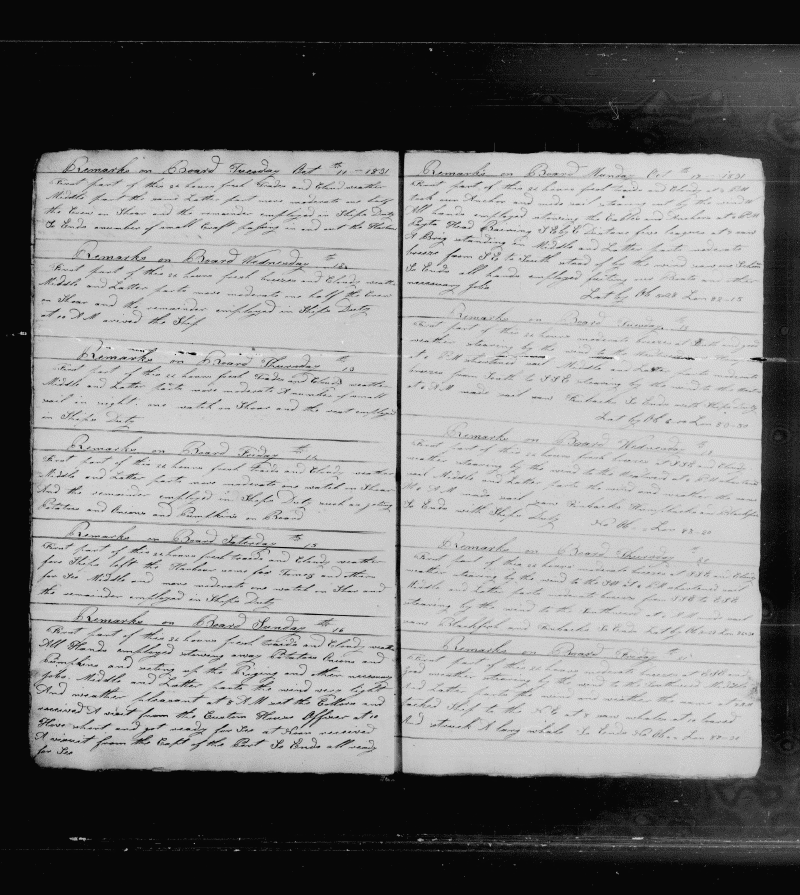 Remarks on Board Tuesday Oct th 11 - 1831
First part of this 24 hours fresh Trads and Cloudy weather
Middle part the same Latter part more moderate one half
the Crew on Shoar and the remainder employed in Ships Duty
So Ends a number of small Craft passing in and out the Harbour
Remarks on Board Wednesday th 12
First part of this 24 hours fresh breezes and Cloudy weather
Middle and Latter parts more moderate one half the Crew
on Shoar and the remainder employed in Ships Duty
at 10 A M arived the Ship
Remarks on Board Thursday th 13
First part of this 24 hours fresh Trads and Cloudy weather
Middle and Latter parts more moderate A number of small
sail in night one watch on Shoar and the rest employed
in Ships Duty
Remarks on Board Friday th 14
First part of this 24 hours fresh Trads and Cloudy weather
Middle and Latter parts more moderate one watch on Shoar
And the remainder employed in Ships Duty such as geting
Potatoes and Onions and Pumpkins on Board
Remarks on Board Saturday th 15
First part of this 24 hours fresh Traids and Cloudy weather
four Ships left the Harbour some for and others
for Sea Middle and more moderate one watch on Shoar and
the remainder employed in Ships Duty
Remarks on Board Sunday th 16
First part of this 24 hours fresh Traids and Cloudy weather
All Hands employed stowing away Potatoes Onions and
Pumpkins and seting up the Riging and other necessary
jobs Middle and Latter parts the wind were light
And weather pleasant at 8 A M
received A visit from the Custom House Officer at 10
Hove short and got ready for Sea at Noon received
A viseit from the Capt of the Port So Ends all ready
for Sea
Remarks on Board Monday Oct th 17 - 1831
First part of this 24 hours fresh Traids and Cloudy at 2 P M
took our Anchor and made sail stearing out by the wind
All hands employed stowing the Cables and Anchors at 6 P M
Head Bearing S E by E Distans five leagues at 8 saw
A Brig standing in Middle and Latter parts moderate
breezes from S E to South by the wind
So Ends all hands employed fiting our Boats and other
necessary jobs Lat by Ob Lon 82-15
Remarks on Board Tuesday th 18
First part of this 24 hours moderate breezes at South and good
weather stearing by the wind to the
at 6 P M shortened sail Middle and Latter parts moderate
breezes from South to S S E stearing by the wind to the
at 6 A M made sail saw Finbacks So Ends with Ships Duty
Lat by Ob Lon 83-30
Remarks on Board Wednesday th
First part of this 24 hours fresh breezes at S S E and Cloudy
weather stearing by the wind to the at 6 P M shortened
sail Middle and Latter parts the wind and weather the same
At 6 A M made sail saw Finbacks Humpbacks and Blackfish
So Ends with Ships Duty No Ob Lon
Remarks on Board Thursday th 20
First part of this 24 hours moderate breezes at S S E and Cloudy
weather stearing by the wind to the S W at 6 P M shortened sail
Middle and Latter parts moderate breezes from S S E to E S E
stearing by the wind to the Southward at sail
saw Blackfish and Finbacks So Ends Lat by Ob Lon
Remarks on Board Friday
First part of this 24 hours moderate breezes at and
good weather stearing by the wind to the Southward Middle
And Latter parts the wind and weather the same at
tacked Ship to the N E at 8 saw whales at 10 lowed
And struck A long whale So Ends No Ob Lon